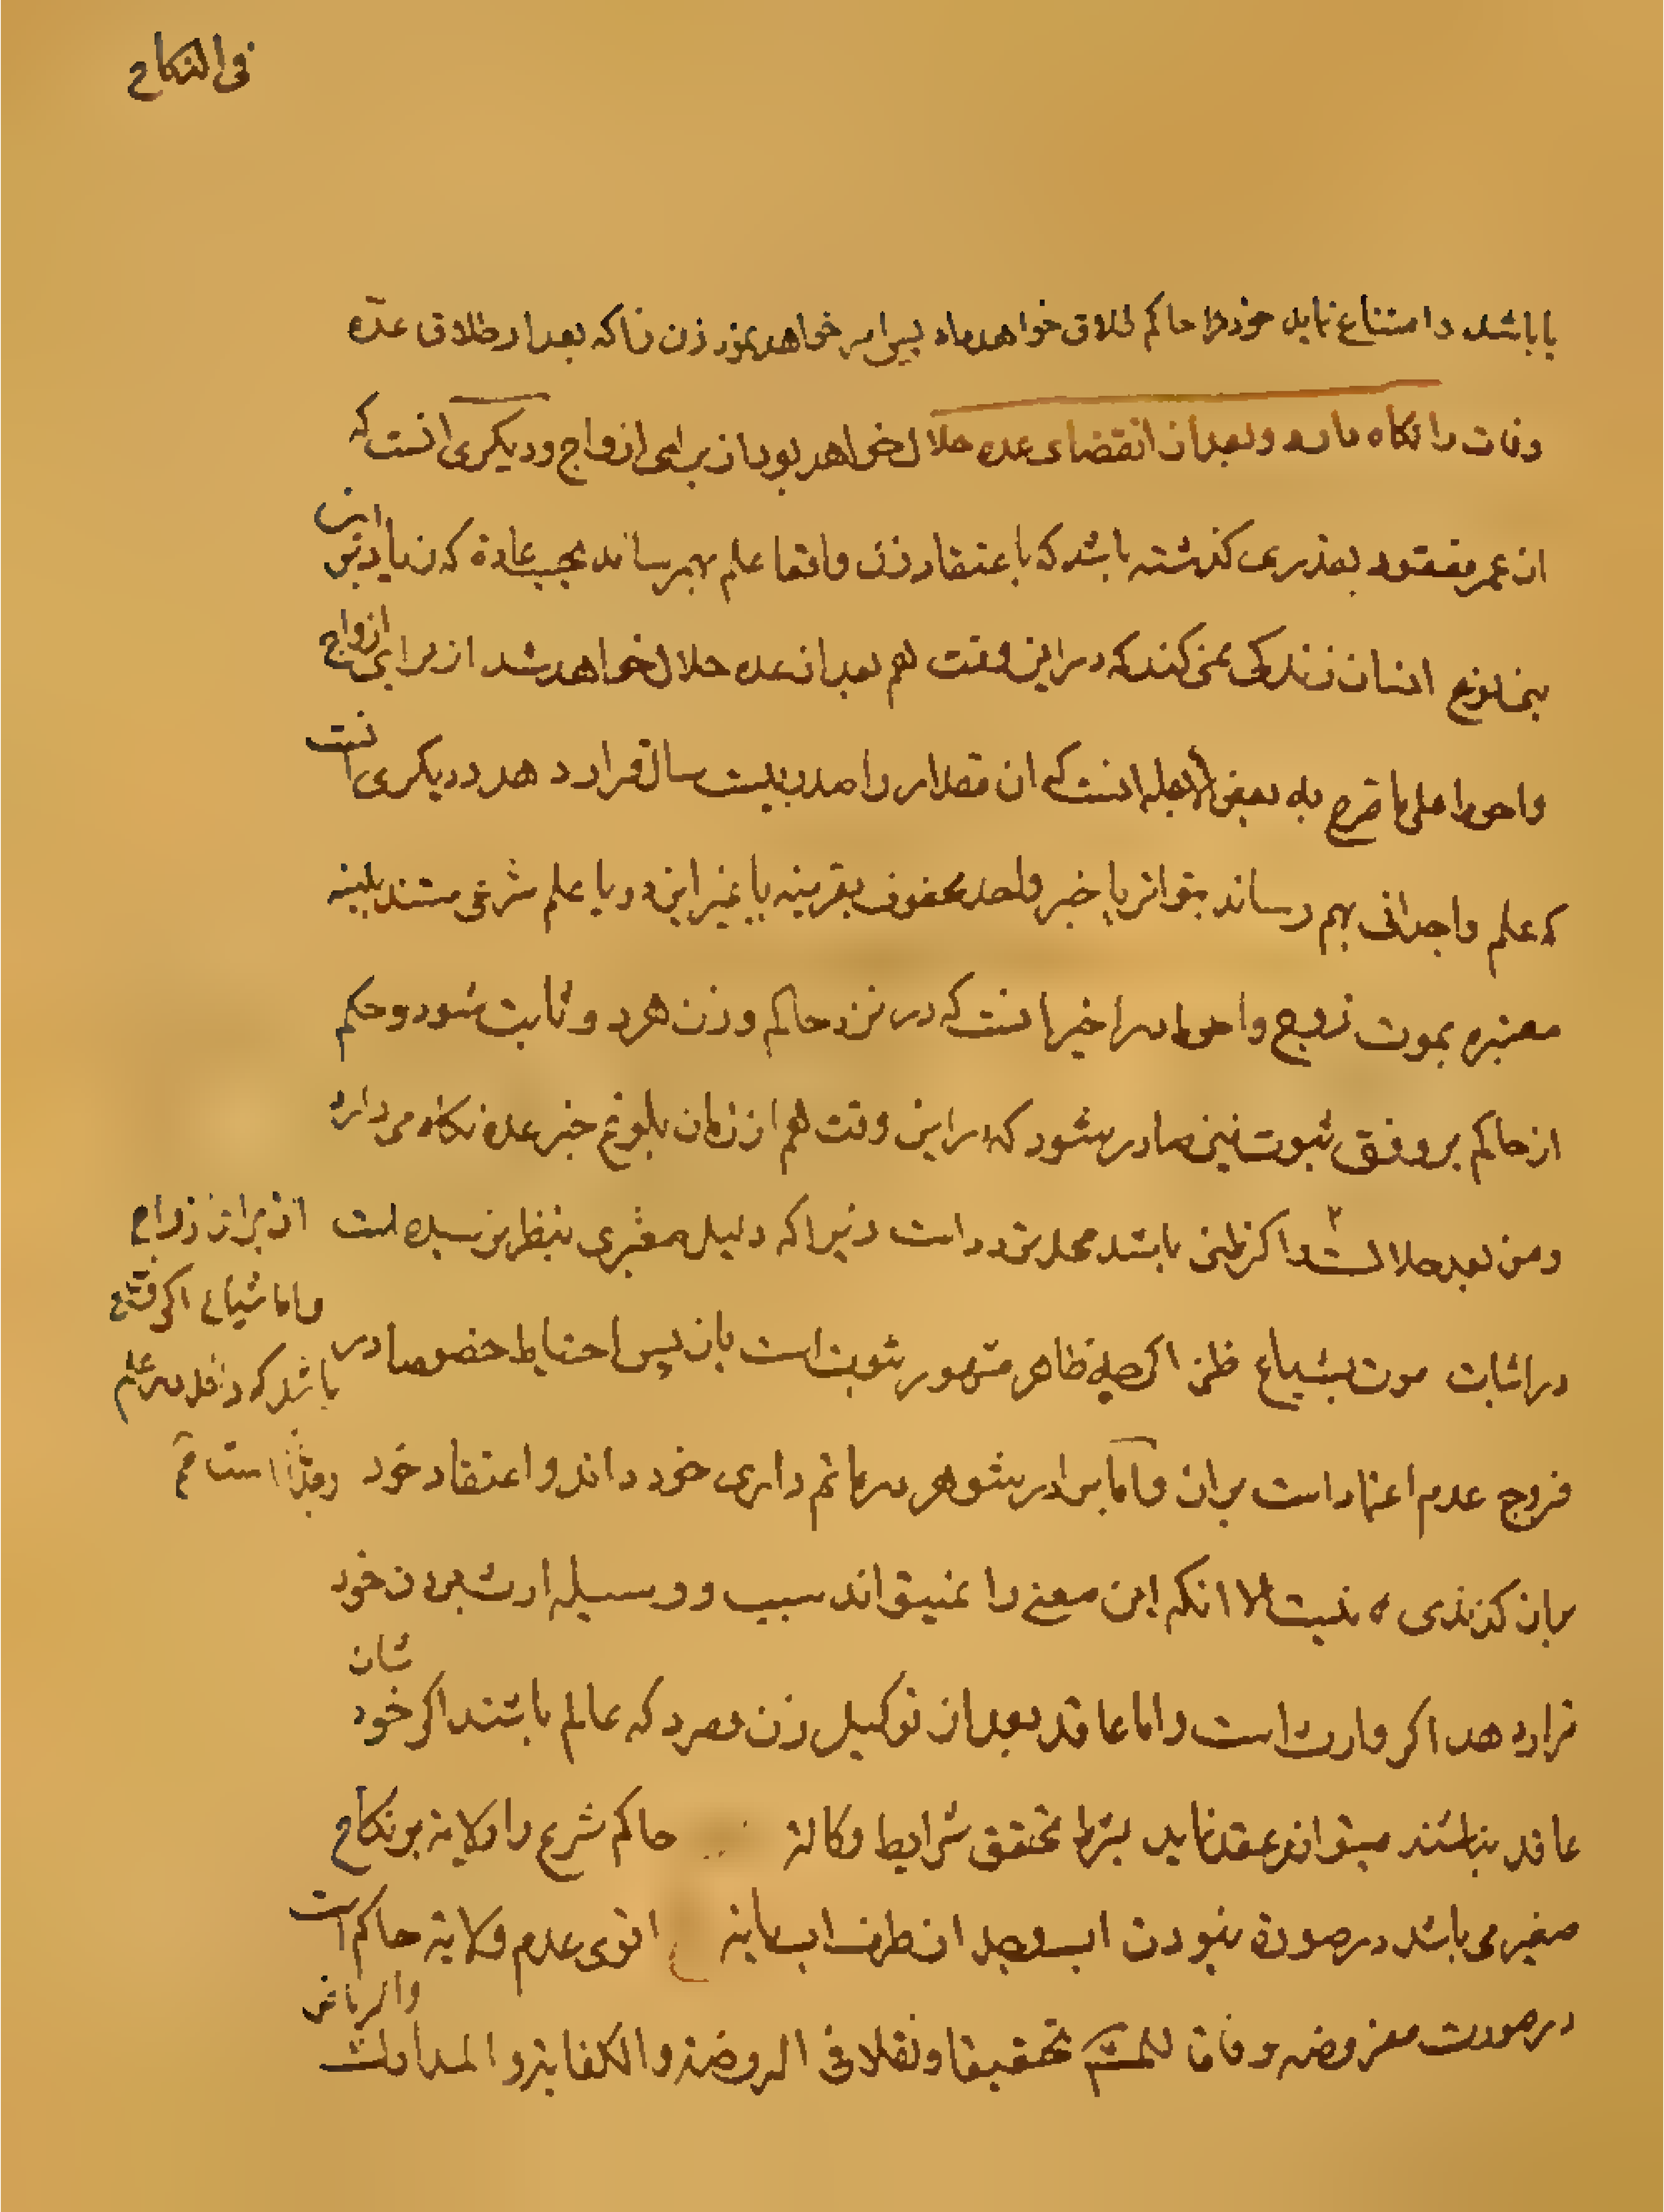 فی النکاح
یا باشد و امتناع نماید خود حاکم طلاق خواهد داد پس امر خواهد نمود زن را که بعد از طلاق عدّه
وفات را نگاه دارد و بعد از انقضای عده حلال خواهد بود از برای ازواج و دیگری انست که
از عمر مفقود بقدری گذشته باشد که باعتقاد زن واقعا علم بهم رساند بحسب عادة که زیاد بر این
انسان زندگی نمی کند که در این وقت هم بعد از عده حلال خواهد شد از برای ازواج
واحوط انست که ان مقدار را صد بیست سال قرار دهد و دیگری انست
که علم واجدانی بهم رساند بتواتر یا خبر واحد محفوف بقرینه یا غیر این دو یا علم شرعی مستند ببینه
معتبره بموت زوج و احوط در اخیر انست که در نزد حاکم و زن هر دو ثابت شود و حکم
از حاکم بر وفق ثبوت نیز صادر شود که در این وقت هم از زمان بلوغ خبر عده نگاه می دارد
ومن بعد حلال است و اگر ظنی باشد محل تردد است زیرا که دلیل معتبری بنظر نرسیده است
از برای ازواج
و اما شیاع اگر
باشد که داخل در علم
در اثبات موت بشیاع ظنی اگرچه ظاهر مشهور ثبوت است بان پس احتیاط خصوصا در
فروج عدم اعتماد است بران و اما برادر شوهر در ماتم داری خود داند و اعتقاد خود
بران کزندی نیست الا انکه این معنی را نمیتواند سبب و وسیله ارث بردن خود
قرار دهد اگر وارث است و اما عاقد بعد از توکیل زن و مرد که عالم باشند اگر خودشان
عاقد نباشند میتواند عقد نماید بشرط تحقق شرایط وکالة حاکم شرع را ولایة بر نکاح
صغیر می باشد در صورة نبودن اب وجد از طرف اب یا نه اقوی عدم ولایة حاکم است
در صورت مفروضه وفاقا للمشهور تحقیقا ونقلا فی الروضة والکفایة و المدارک والریاض